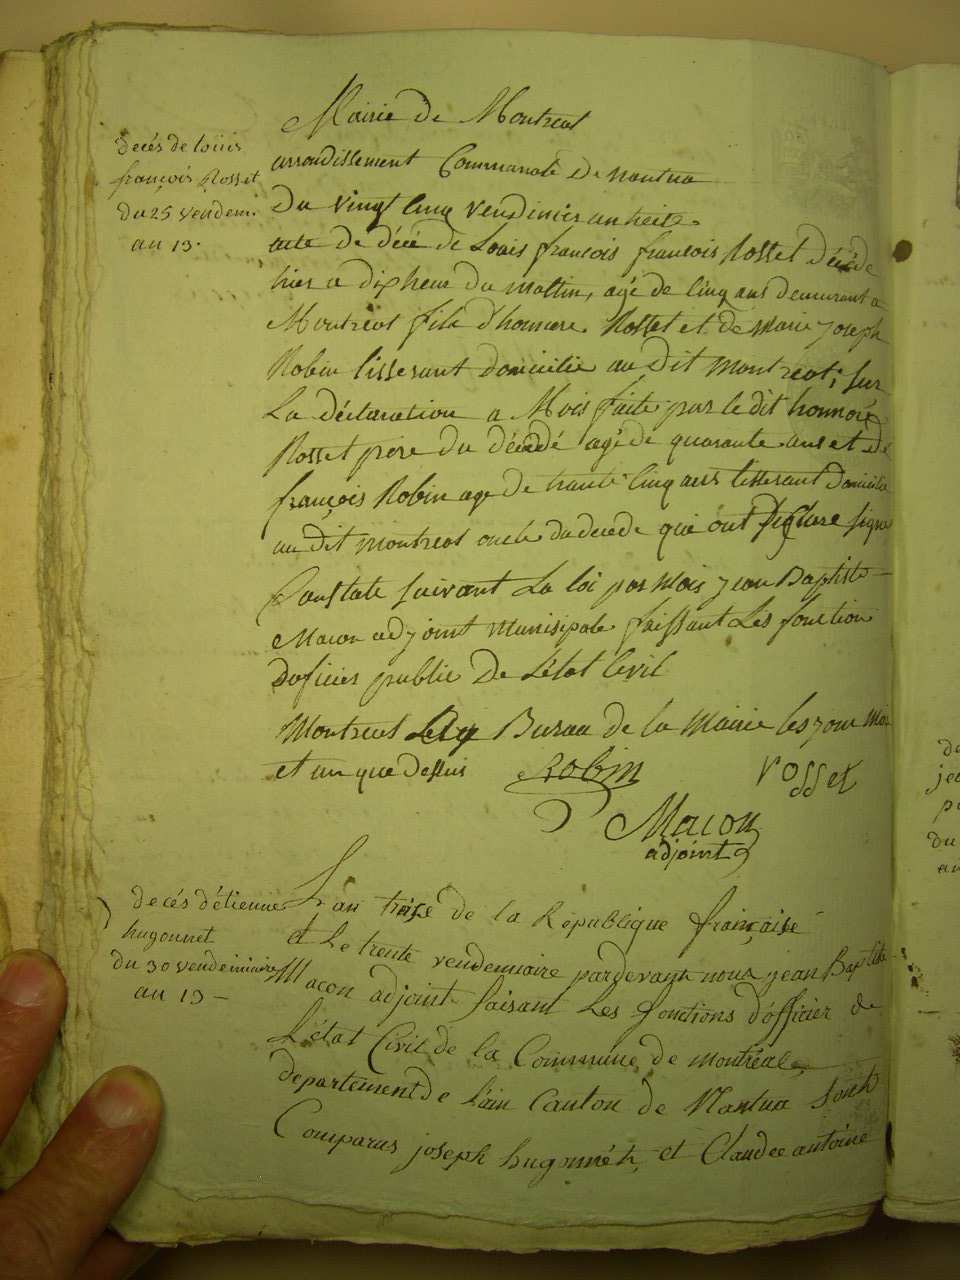 decés de louis
françois Rosset
du 25 vendem.
an 13.
Mairie de Montreal
arrondissement Communale de nantua
Du vingt cinq vendimier an treize
acte de décé de Louis françois françois Rosset décéde
hier a dix heur du mattin, agé de cinq ans demeurant a
Montreal fils d'honnore Rosset et de marie joseph
Robin tisserant domicilié au dit montreal; sur
La déclaration a Mois faite par le dit honnoré
Rosset père du décédé agé de quarante ans et de
françois Robin age de trante cinq ans tisserant domicilie
au dit montreal oncle du decede qui ont signe
Constate suivant La loi par Mois jean Baptiste
Macon adjoint Munisipale faissant Les fonction
doficier public De L'état Civil
Montreal Bureau de la Mairie les jour Mois
et an que dessus Robin rosset
Macon
adjoint
decés d'étienne
hugonnet
du 30 vendemiaire
an 13 -
L'an treize de la République française
et le trente vendemiaire pardevant nous jean Baptiste
Macon adjoint faisant Les fonctions d'officier de
L'état Civil de la Commune de montréal
departement de l'ain Canton de Nantua sont
Comparus joseph hugonnet, et Claude antoine